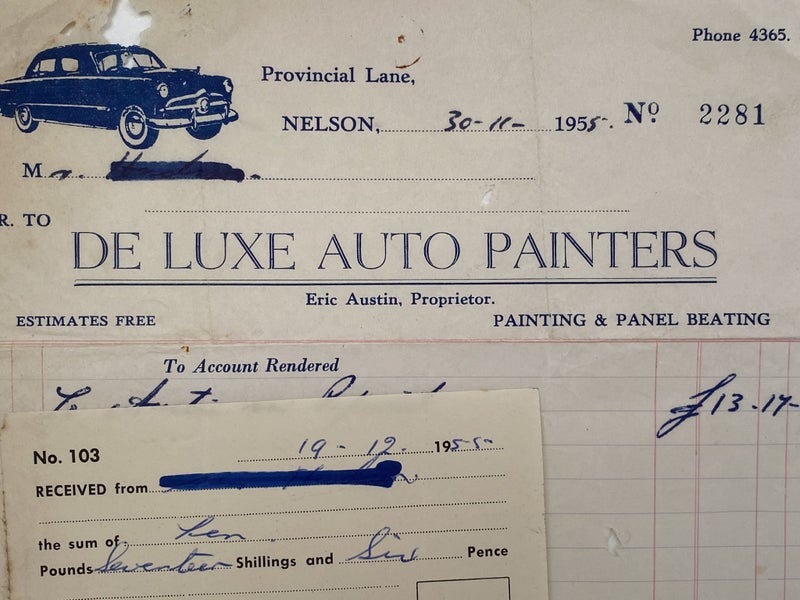 Phone 4365.
Provincial Lane,
NELSON, 30-11- 1955. Nº 2281
Mr.
R. TO
DE LUXE AUTO PAINTERS
Eric Austin, Proprietor.
ESTIMATES FREE PAINTING & PANEL BEATING
To Account Rendered
To £13-17-
No. 103 19-12. 1955
RECEIVED from
the sum of Ten
Pounds Seventeen Shillings and Six Pence